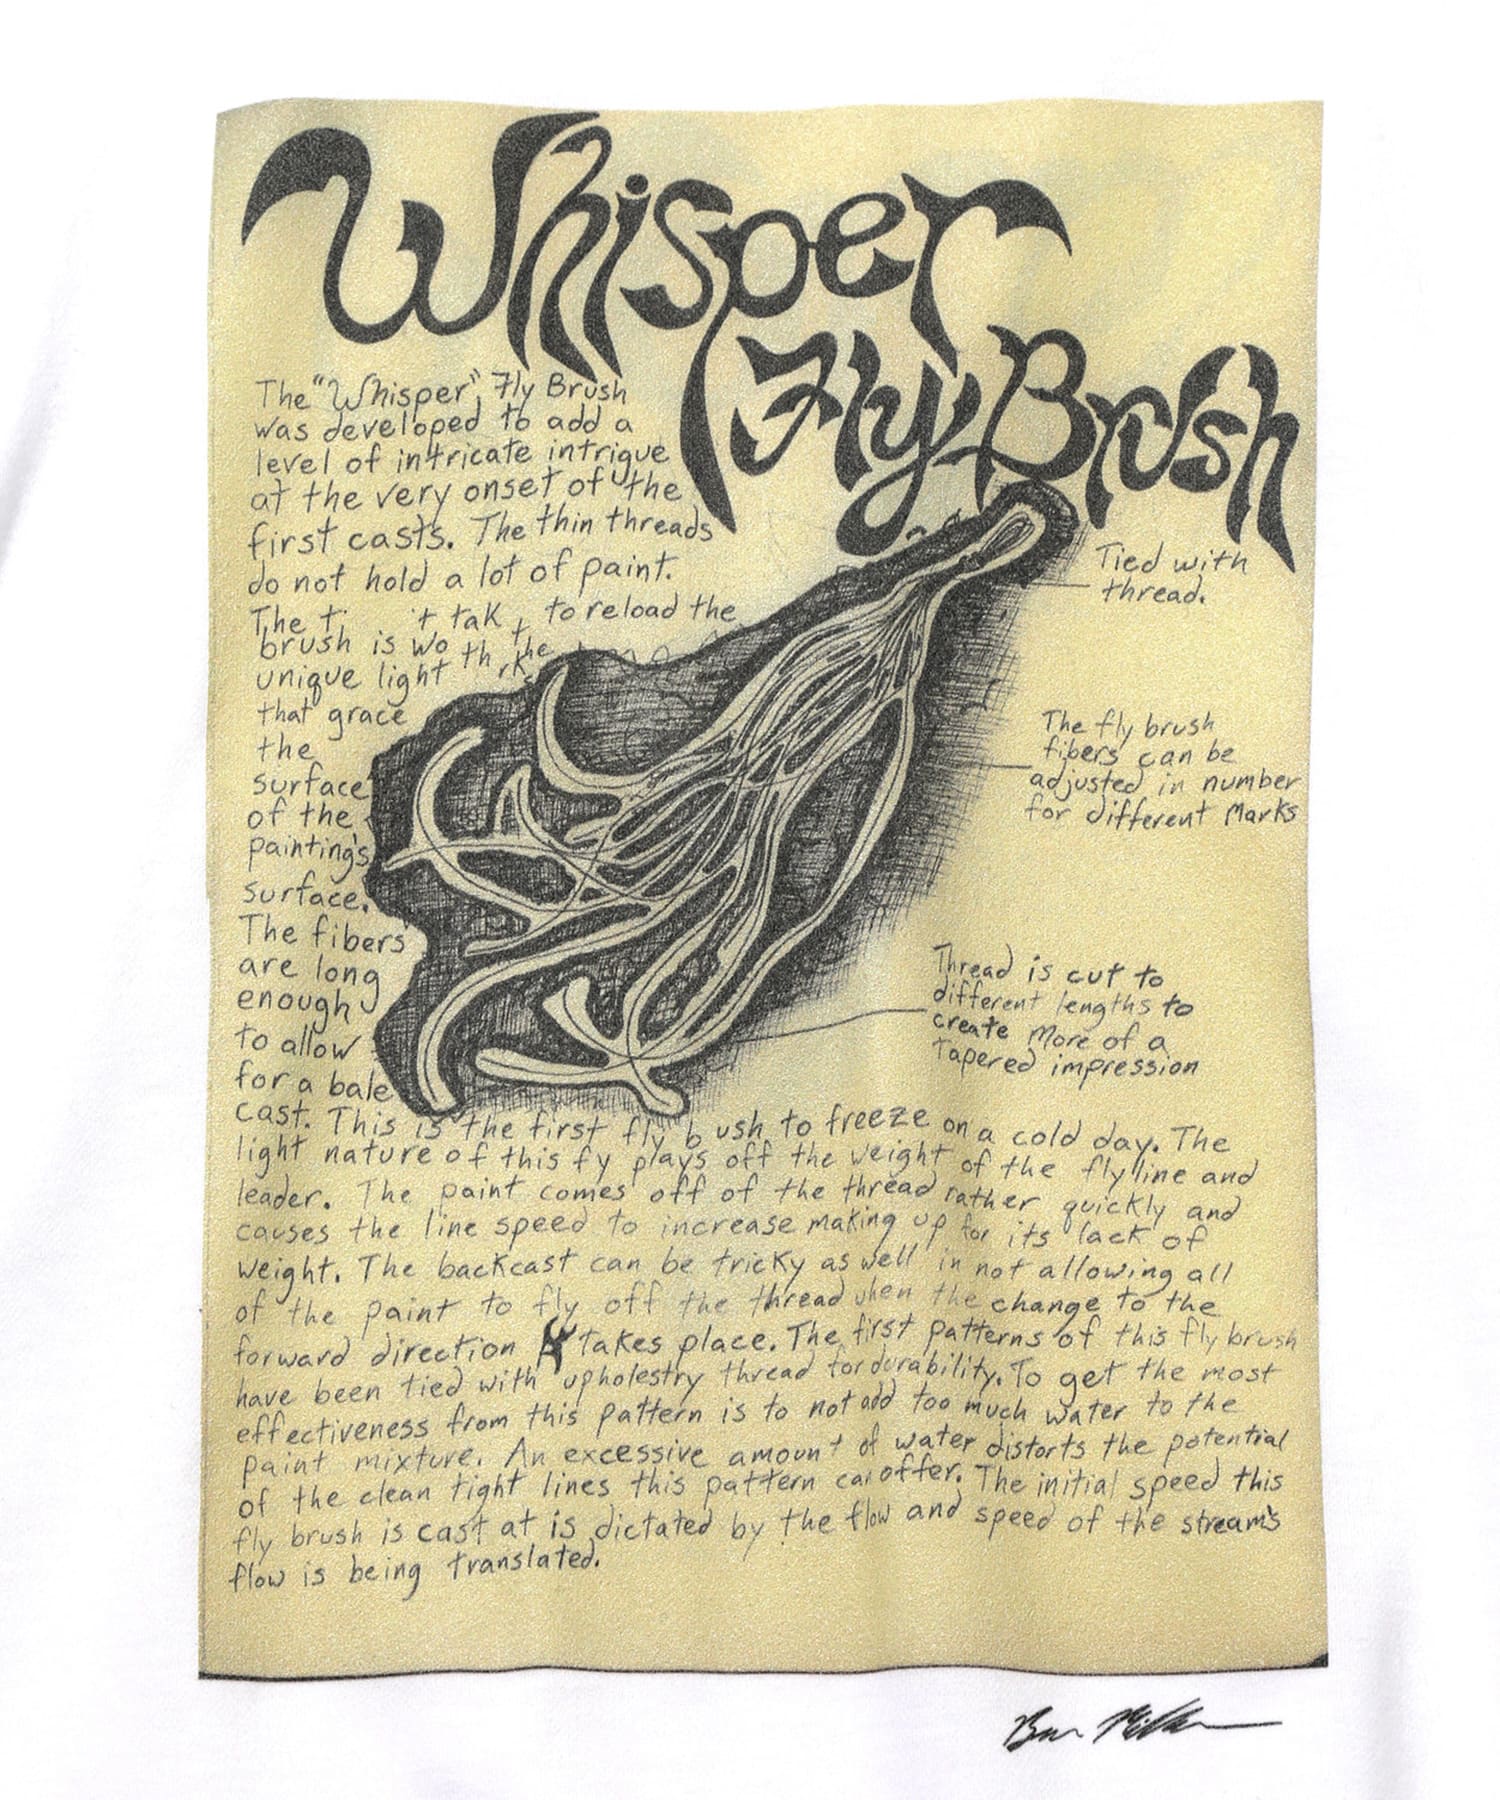 Whisper
Fly Brush
The "Whisper" Fly Brush
was developed to add a
level of intricate intrigue
at the very onset of the
first casts. The thin threads
do not hold a lot of paint.
The t tak to reload the
brush is wo th the
unique light rk
that grace
the
surface
of the
painting's
surface.
The fibers
are long
enough
to allow
for a bale
cast. This is the first fly b ush to freeze on a cold day. The
light nature of this fy plays off the weight of the fly line and
leader. The paint comes off of the thread rather quickly and
causes the line speed to increase making up for its lack of
weight. The backcast can be tricky as well in not allowing all
of the paint to fly off the thread when the change to the
forward direction takes place. The first patterns of this fly brush
have been tied with upholestry thread for durability. To get the most
effectiveness from this pattern is to not add too much water to the
paint mixture. An excessive amount of water distorts the potential
of the clean tight lines this pattern can offer. The initial speed this
fly brush is cast at is dictated by the flow and speed of the stream's
flow is being translated.
Tied with
thread.
The fly brush
fibers can be
adjusted in number
for different Marks
Thread is cut to
different lengths to
create More of a
Tapered impression